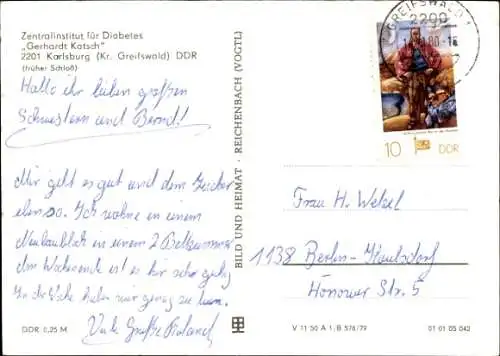 Zentralinstitut für Diabetes
„Gerhardt Katsch"
2201 Karlsburg (Kr. Greifswald) DDR
(früher Schloß)
Hallo ihr lieben großen
Schwestern und Bernd!
Mir geht es gut und dem Zucker
ebenso. Ich wohne in einem
Neubaublock in einem 2 Bettzimmer
Am Wochenende ist es hier sehr
In der Woche haben wir genug zu tun.
Viele Grüße Roland
DDR 0,25 M
BILD UND HEIMAT · REICHENBACH (VOGTL)
GREIFSWALD 1
2200
80-16
10 DDR
Frau H. Wetzel
1138 Berlin-Kaulsdorf
Hönower Str. 5
V 11 50 A 1, B 576/79
01 01 05 042